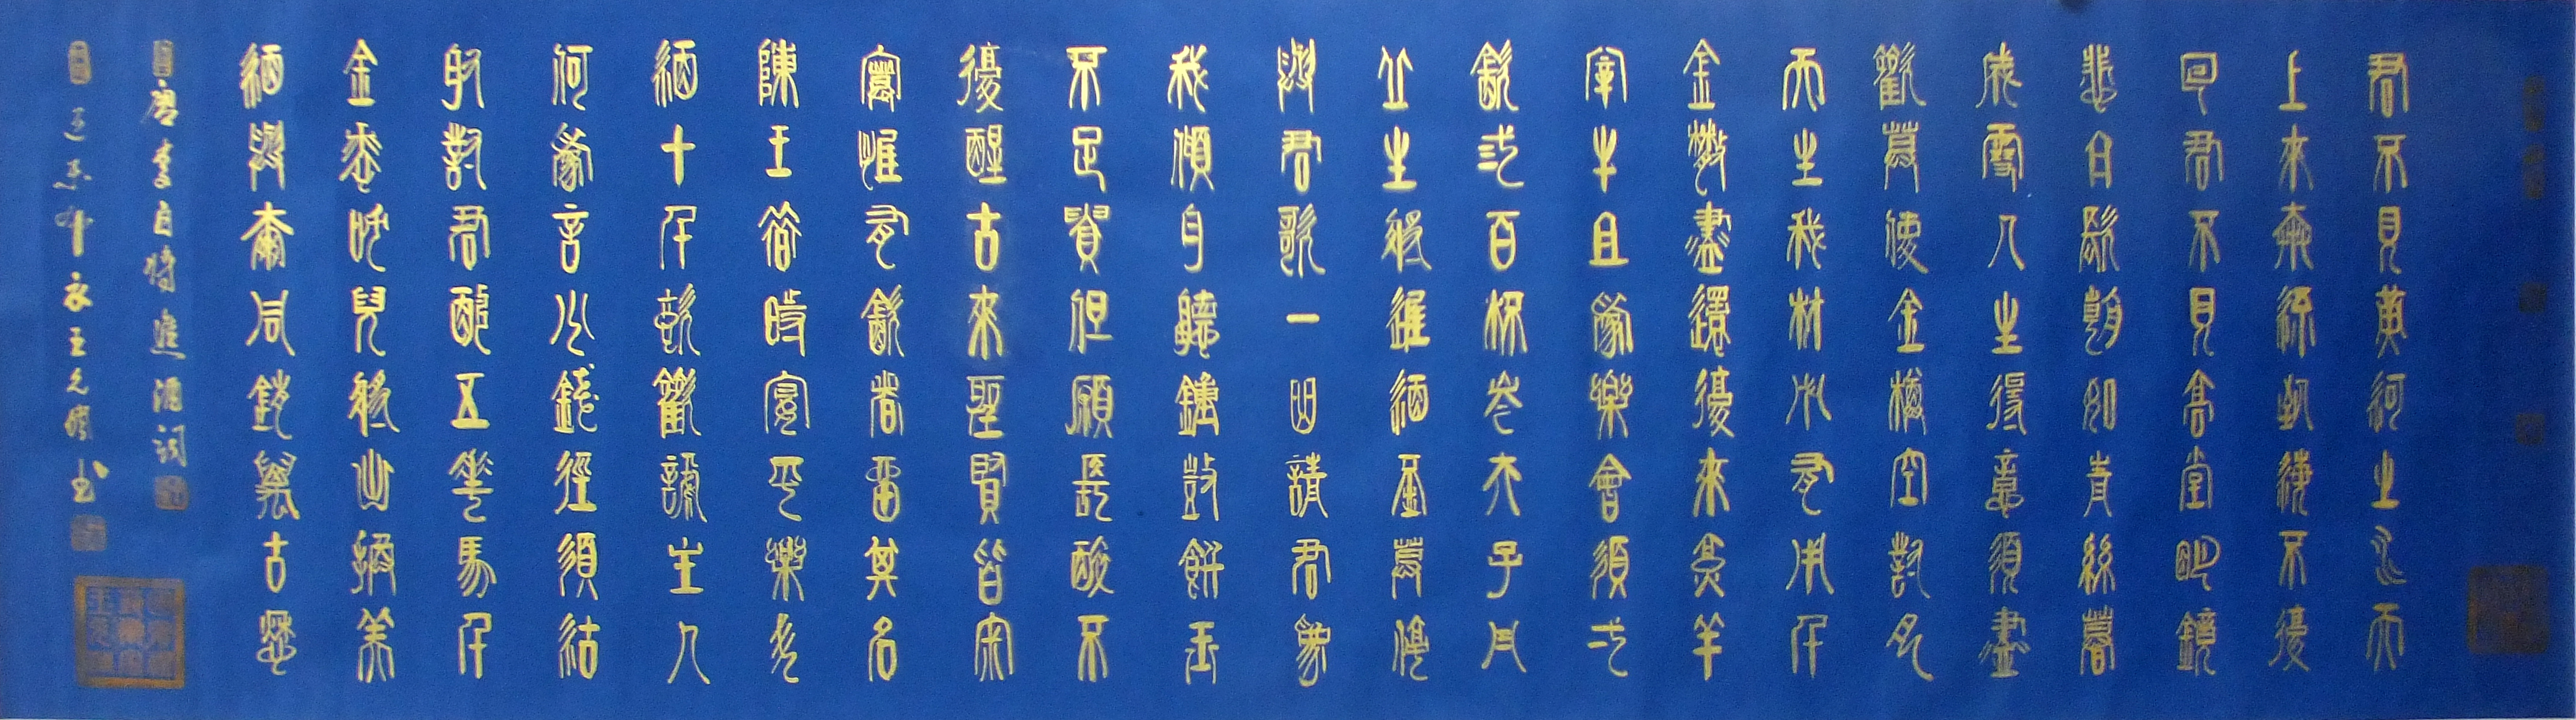 君不見黃河之水天
上來奔流到海不復
回君不見高堂明鏡
悲白髮朝如青絲暮
成雪人生得意須盡
歡莫使金樽空對月
天生我材必有用千
金散盡還復來烹羊
宰牛且為樂會須弌
飲弎百杯岑夫子丹
丘生將進酒杯莫停
與君歌一曲請君為
我傾耳聽鐘鼓饌玉
不足貴但願長醉不
復醒古來聖賢皆寂
寞惟有飲者留其名
陳王昔時宴平樂斗
酒十千恣歡謔主人
何為言少錢徑須沽
取對君酌五花馬千
金裘呼兒將出換美
酒與爾同銷萬古愁
唐李白將進酒詞